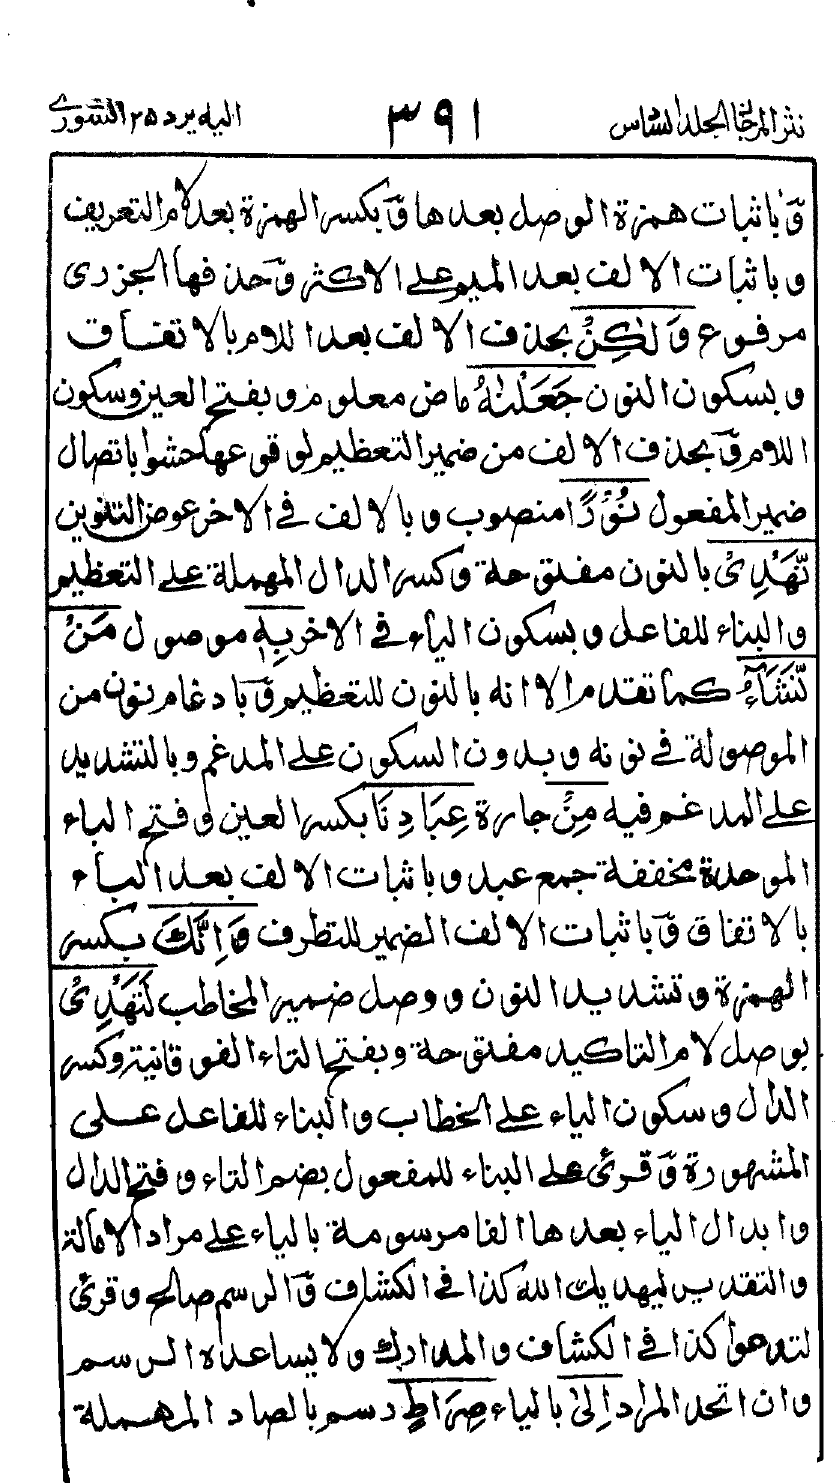 نثر المرجان الجلد السادس ٣٩١ اليه يرد ٢٥ الشورى
وّباثبات همزة الوصل بعدها وّبكسر الهمزة بعد لام التعريف
وباثبات الالف بعد الميم على الاكثر وّحذفها الجزرى
مرفوع وَلٰكِنْ بحذف الالف بعد اللام بالاتفاق
وبسكون النون جَعَلْنٰهُ ماض معلوم وبفتح العين وسكون
اللام وّبحذف الالف من ضمير التعظيم لوقوعها حشوا باتصال
ضمير المفعول نُوْرًا منصوب وبالالف فى الاخر عوض التنوين
نَّهْدِىْ بالنون مفتوحة وكسر الدال المهملة على التعظيم
والبناء للفاعل وبسكون الياء فى الاخر بِهٖ موصول مَنْ
نَّشَآءُ كما تقدم الا انه بالنون للتعظيم وّبادغام نون من
الموصولة فى نونه وبدون السكون على المدغم وبالتشديد
على المدغم فيه مِنْ جارة عِبَادِنَا بكسر العين وفتح الباء
الموحدة مخففة جمع عبد وباثبات الالف بعد الباء
بالاتفاق وّباثبات الالف الضمير للتطرف وَاِنَّكَ بكسر
الهمزة وتشديد النون ووصل ضمير المخاطب لَتَهْدِىْ
بوصل لام التاكيد مفتوحة وبفتح التاء الفوقانية وكسر
الدال وسكون الياء على الخطاب والبناء للفاعل على
المشهورة وّقرئ على البناء للمفعول بضم التاء وفتح الدال
وابدال الياء بعدها الفا مرسومة بالياء على مراد الامالة
والتقدير ليهديك الله كذا فى الكشاف وّالرسم صالح وقرئ
لتدعوا كذا فى الكشاف والمدارك ولا يساعده الرسم
وان اتحد المراد اِلىٰ بالياء صِرَاطٍ رسم بالصاد المهملة